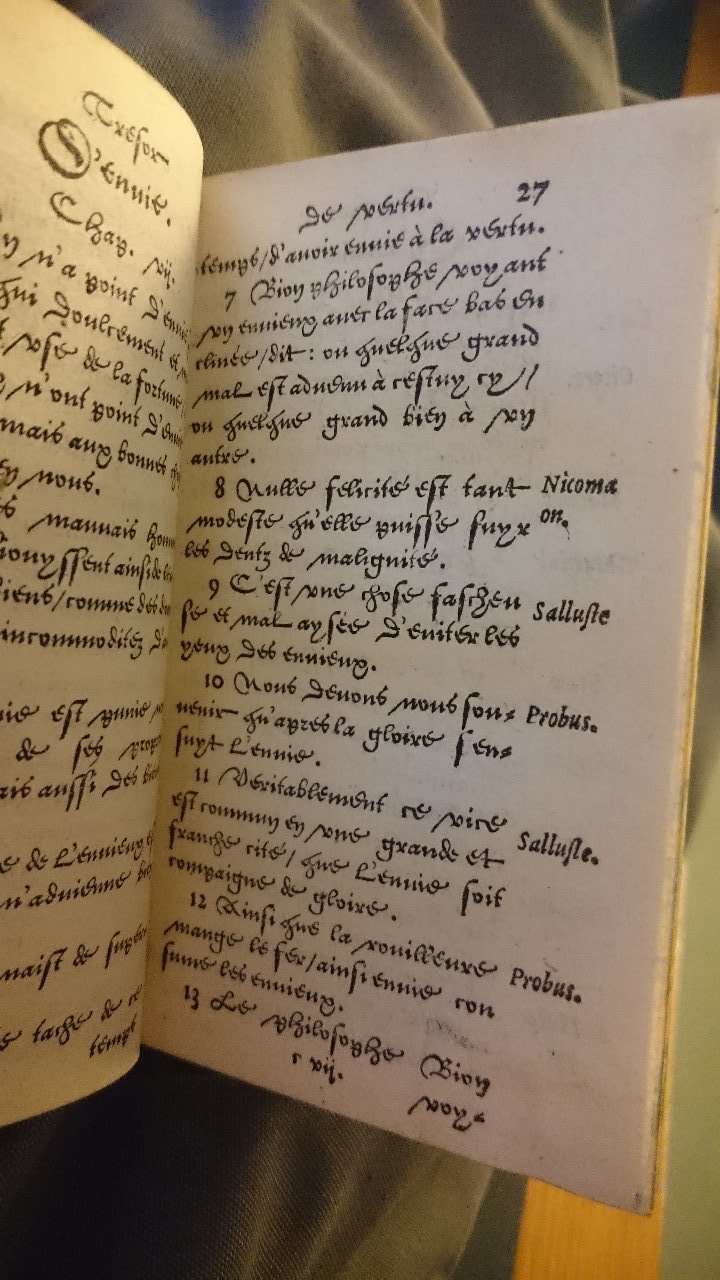 Tresor
D'ennie.
Chap. vij.
n'a point d'ennie
hui doulcement et
vse de la fortune
n'ont point d'en
mais aux bonnes
nous.
mauuais hom
ouyssent ainsi de
iens/comme des
incommoditez
ie est punie
de ses propr
ais aussi des bi
e de L'enuieux
n'aduienne
naist de super
e tache de ce
temps
de vertu. 27
temps/d'auoir enuie à la vertu.
7 Bion philosophe voyant
vn enuieux auec la face bas en
clinée/dit: ou quelque grand
mal est aduenu à cestuy cy//
ou quelque grand bien à vn
autre.
8 Nulle felicité est tant Nicomæ
modeste qu'elle puisse fuyr on.
les dentz de malignité.
9 C'est vne chose fascheu Salluste
se et mal aysée d'euiter les
yeux des enuieux.
10 Nous deuons nous sou= Probus.
uenir qu'apres la gloire s'en=
suyt L'enuie.
11 Veritablement ce vice
est commun en vne grande et Salluste.
franche cité/ que L'enuie soit
compaigne de gloire.
12 Ainsi que la rouilleure Probus.
mange le fer/ainsi enuie con
sume les enuieux.
13 Le philosophe Bion
c vij. voy=